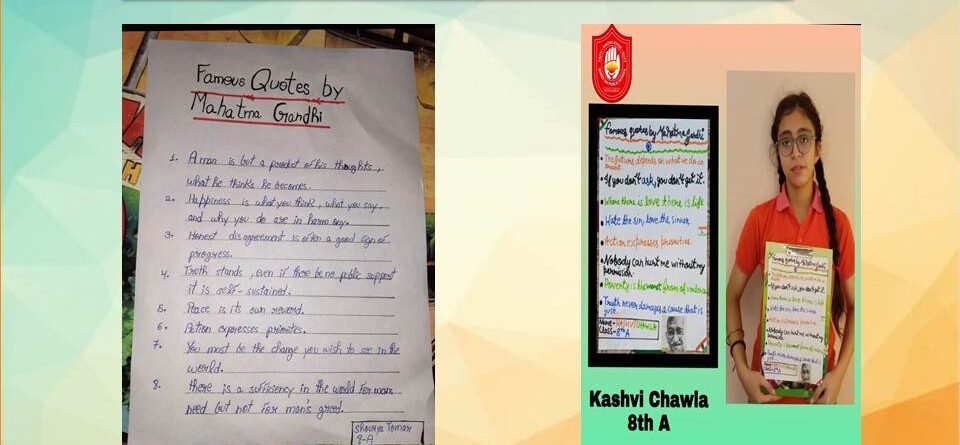 Famous Quotes by
Mahatma Gandhi
1. A man is but a product of his thoughts,
what he thinks he becomes.
2. Happiness is what you think, what you say,
and why you do are in harmony.
3. Honest disagreement is often a good sign of
progress.
4. Troth stands, even if there be no public support
it is self-sustained.
5. Peace is its own reword.
6. Action expresses priorites.
7. You must be the change you wish to see in the
world.
8. there is a sufficiency in the world for man
need but not for man's greed.
Shourya Tomar
8-A
Famous quotes by Mahatma Gandhi
The future depends on what we do in
If you don't ask, you don't get it.
Where there is love there is life
Hate the sin, love the sinner
Action expresses priorities
Nobody can hurt me without my
permission.
Poverty is the worst form of violence
Truth never damages a cause that is
just.
Name - KASHVI CHAWLA
Class - 8th A
Kashvi Chawla
8th A